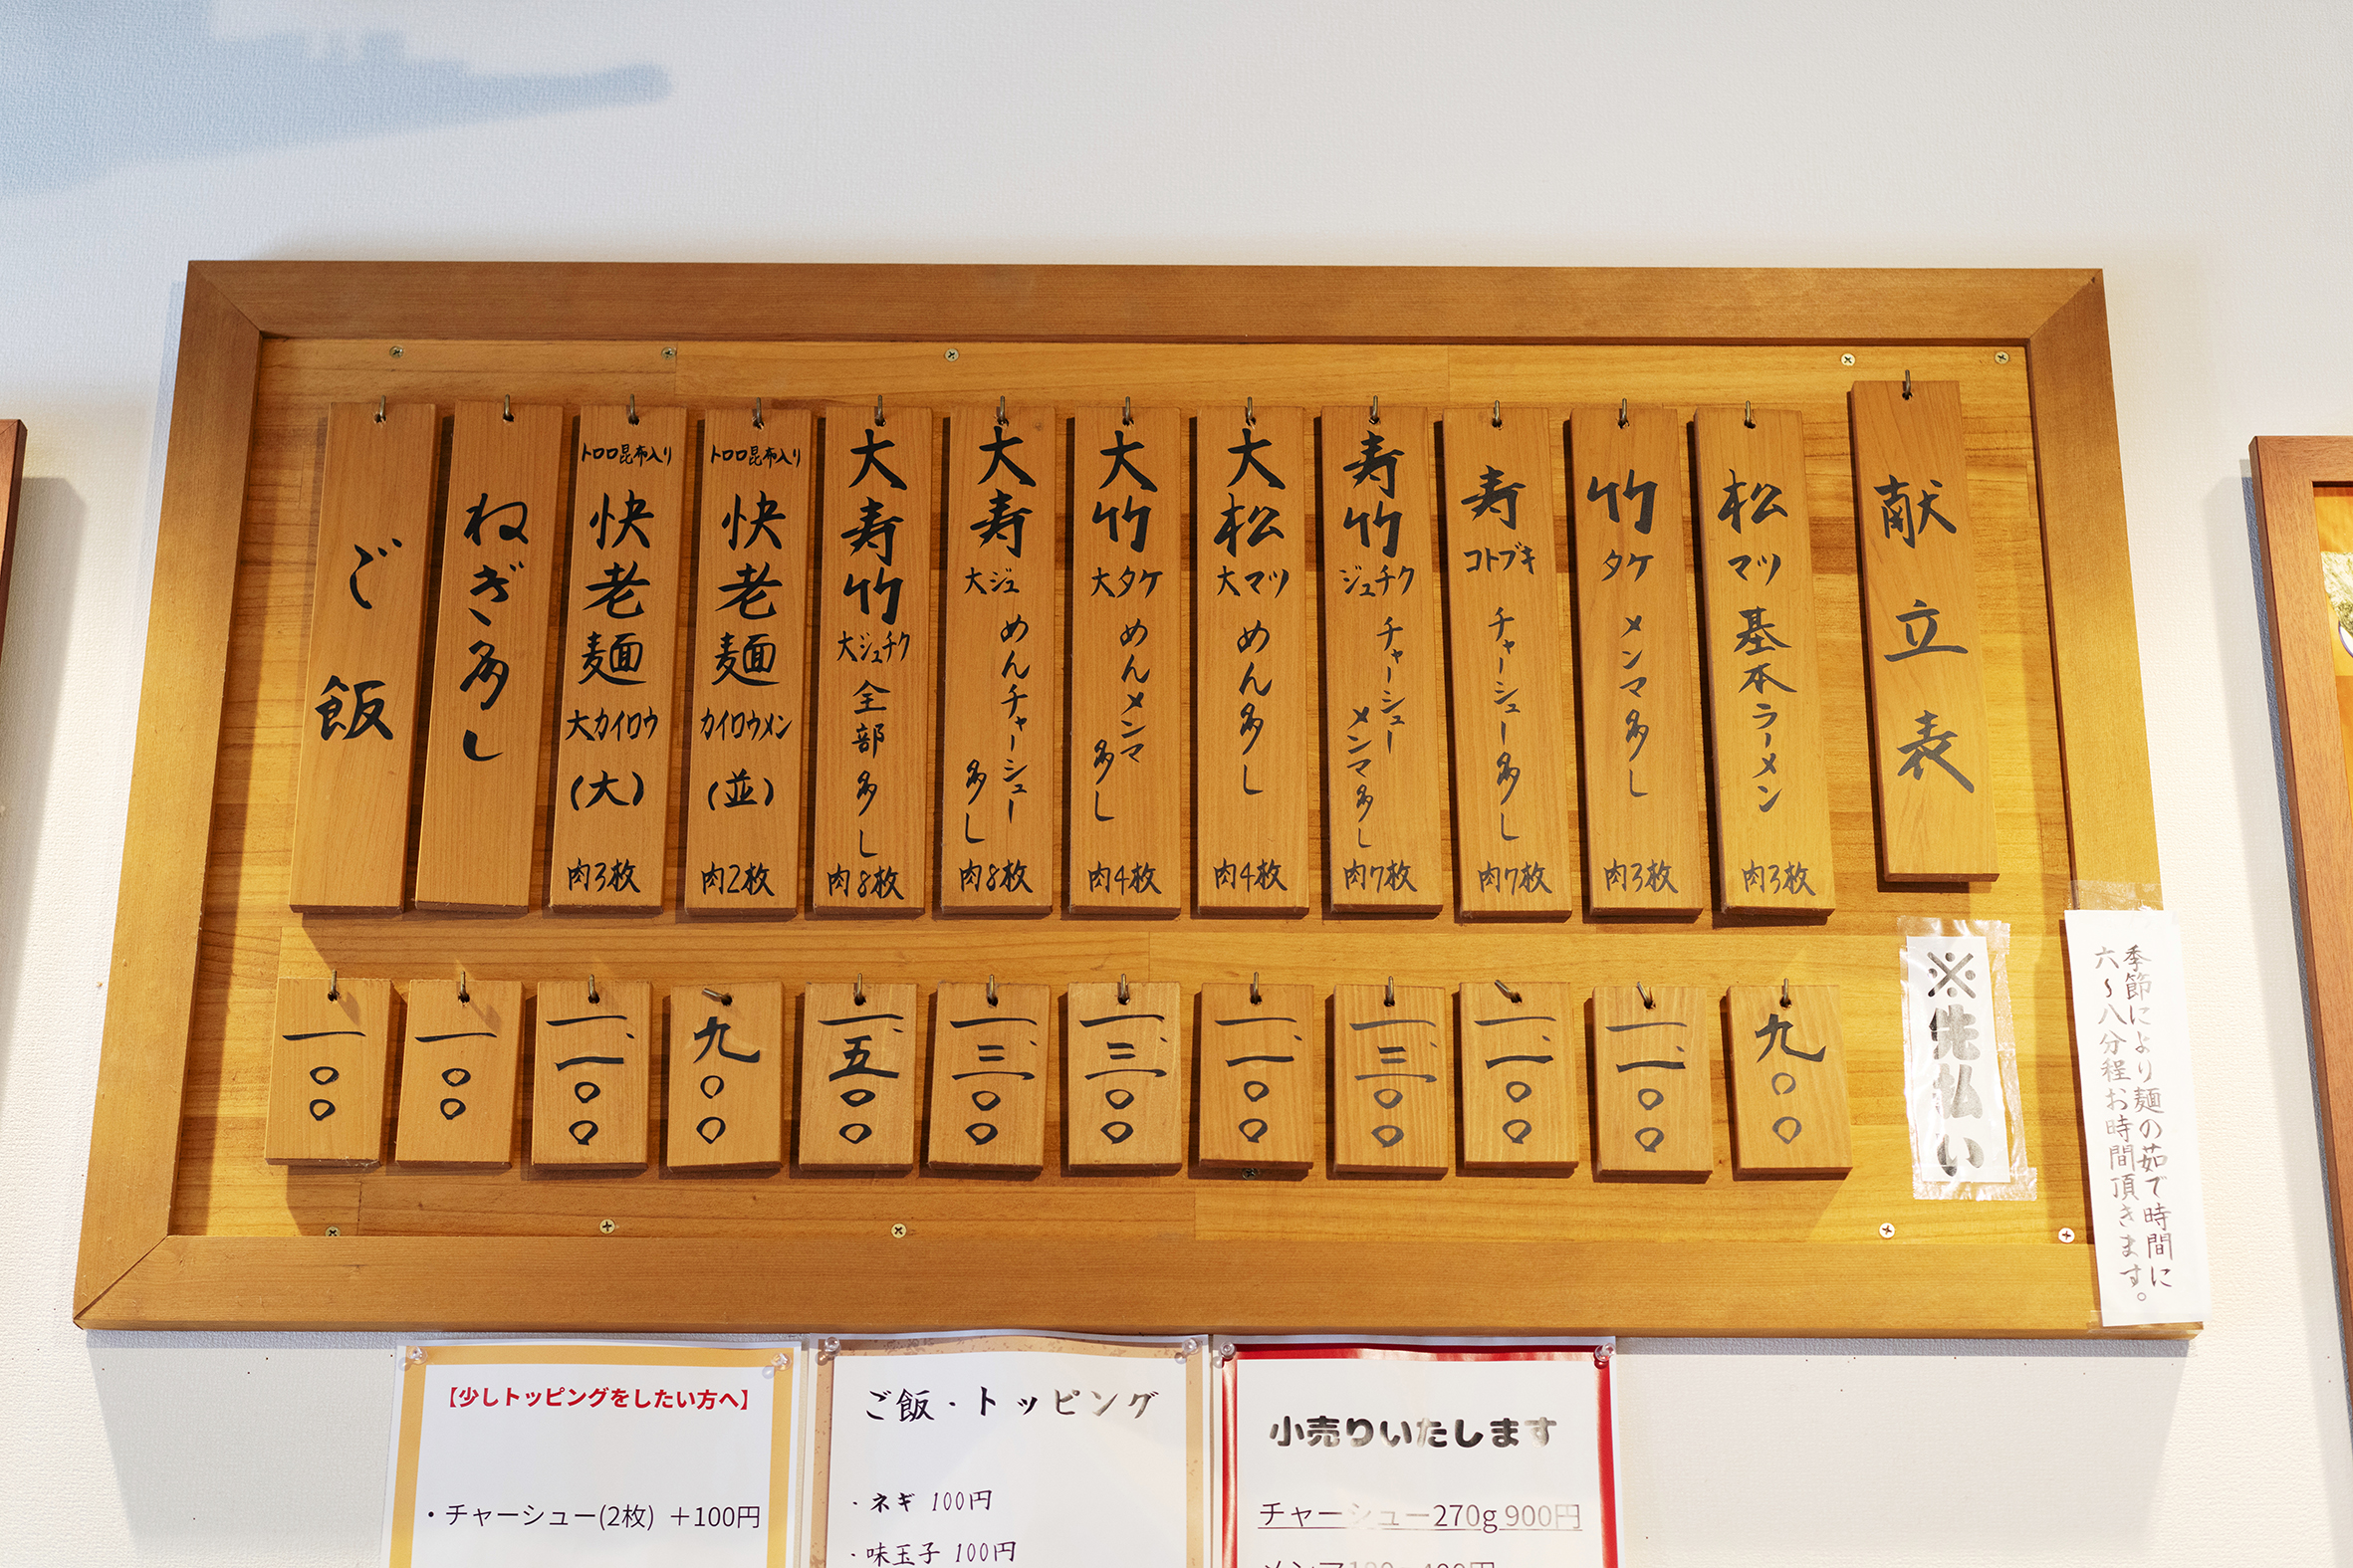 献立表
松
マツ
基本ラーメン
肉3枚
九〇〇
竹
タケ
メンマ多し
肉3枚
一、一〇〇
寿
コトブキ
チャーシュー多し
肉7枚
一、一〇〇
寿竹
ジュチク
チャーシュー
メンマ多し
肉7枚
一、三〇〇
大松
大マツ
めん多し
肉4枚
一、一〇〇
大竹
大タケ
めんメンマ
多し
肉4枚
一、三〇〇
大寿
大ジュ
めんチャーシュー
多し
肉8枚
一、三〇〇
大寿竹
大ジュチク
全部多し
肉8枚
一、五〇〇
トロロ昆布入り
快老麺
カイロウメン
(並)
肉2枚
九〇〇
トロロ昆布入り
快老麺
大カイロウ
(大)
肉3枚
一、一〇〇
ねぎ多し
一〇〇
ご飯
一〇〇
※先払い
季節により麺の茹で時間に
六~八分程お時間頂きます。
【少しトッピングをしたい方へ】
・チャーシュー(2枚) +100円
ご飯・トッピング
・ネギ 100円
・味玉子 100円
小売りいたします
チャーシュー270g 900円